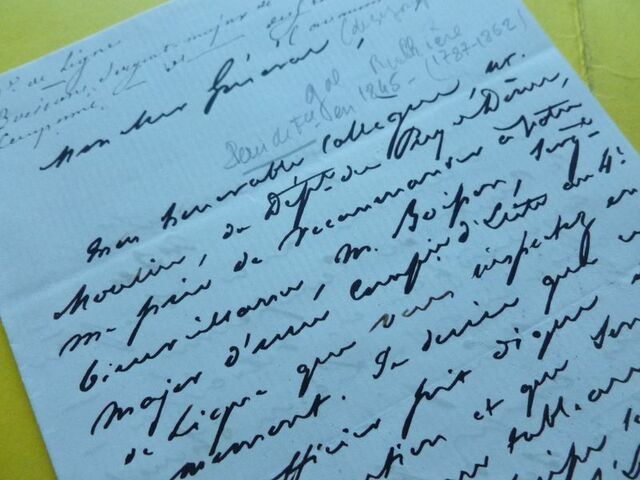 de Ligne
Boisson, Sergent-major de
Compagnie
Monsieur Général,
gal Rulhière
Pair de F en 1845 - (1787-1862)
Mon honorable collègue, M.
Moulin, du Dépt du Puy de Dôme,
me prie de recommander à votre
bienveillance M. Boisson, Serg
major d'une Compie d'Elite au 4e
de Ligne que vous inspectez en
moment. Je désire que
officier soit digne
tion et que
tableau